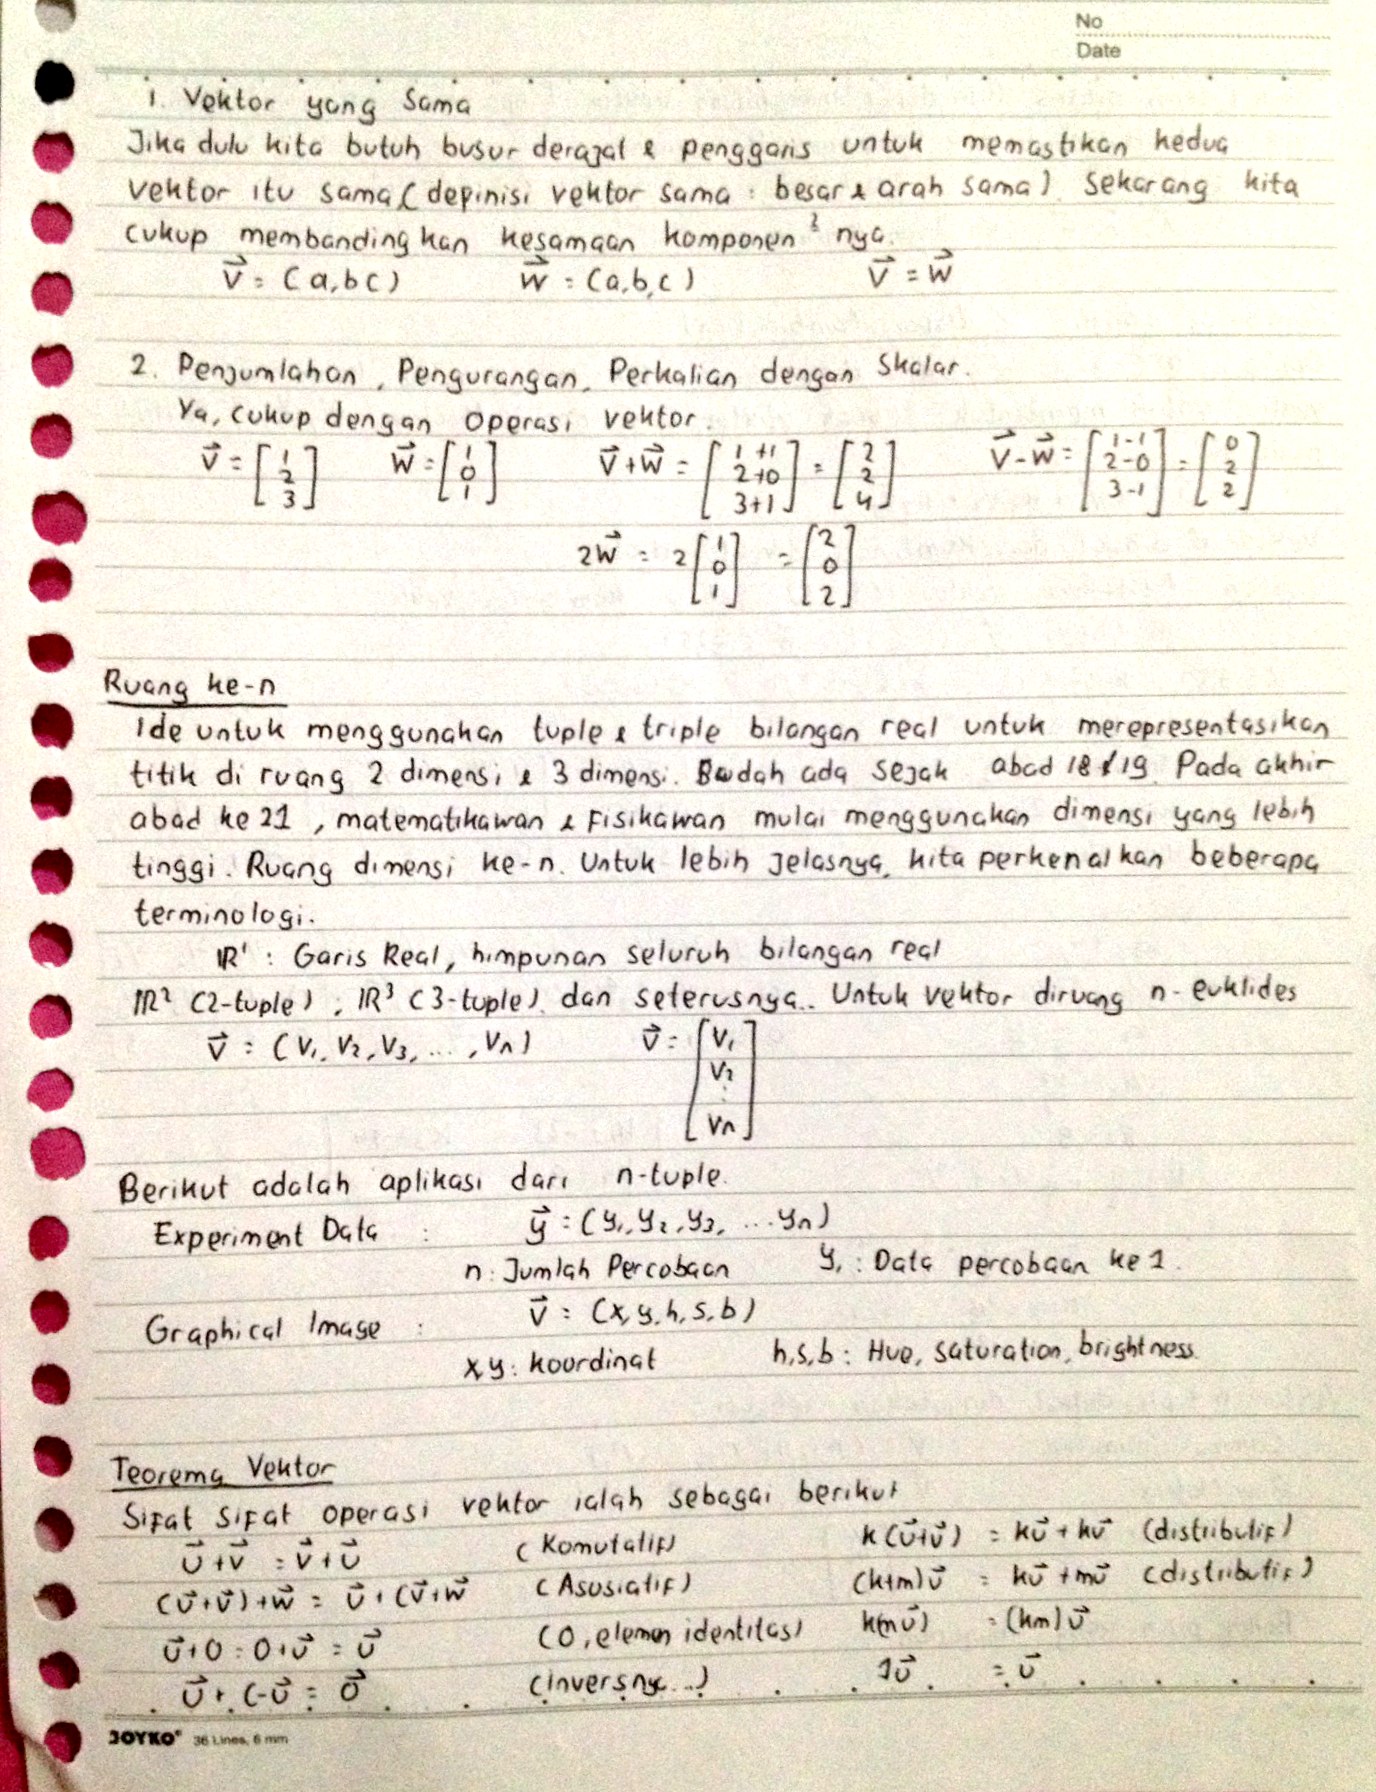 No
Date
1. Vektor yang Sama
Jika dulu kita butuh busur derajat & penggaris untuk memastikan kedua
vektor itu sama (depinisi vektor sama : besar & arah sama). Sekarang kita
cukup membandingkan kesamaan komponen² nya.
v⃗ = (a,b c) w⃗ = (a,b,c) v⃗ = w⃗
2. Penjumlahan, Pengurangan, Perkalian dengan Skalar.
Ya, cukup dengan operasi vektor.
v⃗ = [1 2 3] w⃗ = [1 0 1] v⃗+w⃗ = [1+1 2+0 3+1] = [2 2 4] v⃗-w⃗ = [1-1 2-0 3-1] = [0 2 2]
2w⃗ = 2[1 0 1] = [2 0 2]
Ruang ke-n
Ide untuk menggunakan tuple & triple bilangan real untuk merepresentasikan
titik di ruang 2 dimensi & 3 dimensi. Sudah ada sejak abad 18 & 19. Pada akhir
abad ke 21, matematikawan & Fisikawan mulai menggunakan dimensi yang lebih
tinggi. Ruang dimensi ke-n. Untuk lebih jelasnya, kita perkenalkan beberapa
terminologi.
ℝ¹ : Garis Real, himpunan seluruh bilangan real
ℝ² (2-tuple), ℝ³ (3-tuple) dan seterusnya.. Untuk vektor diruang n-euklides
v⃗ = (v₁, v₂, v₃, ..., vₙ) v⃗ = [v₁ v₂ ⋮ vₙ]
Berikut adalah aplikasi dari n-tuple.
Experiment Data : y⃗ = (y₁, y₂, y₃, ... yₙ)
n : Jumlah Percobaan y₁ : Data percobaan ke 1.
Graphical Image : v⃗ = (x, y, h, s, b)
x, y : koordinat h,s,b : Hue, saturation, brightness.
Teorema Vektor
Sifat sifat operasi vektor ialah sebagai berikut
u⃗+v⃗ = v⃗+u⃗ (Komutatif) k(u⃗+v⃗) = ku⃗ + kv⃗ (distributif)
(u⃗+v⃗)+w⃗ = u⃗+(v⃗+w⃗ (Asosiatif) (k+m)u⃗ = ku⃗ + mu⃗ (distributif)
u⃗+0 = 0+u⃗ = u⃗ (0, elemen identitas) k(mu⃗) = (km)u⃗
u⃗ + (-u⃗ = 0⃗ (inversnya...) 1u⃗ = u⃗
JOYKO® 36 Lines, 6 mm